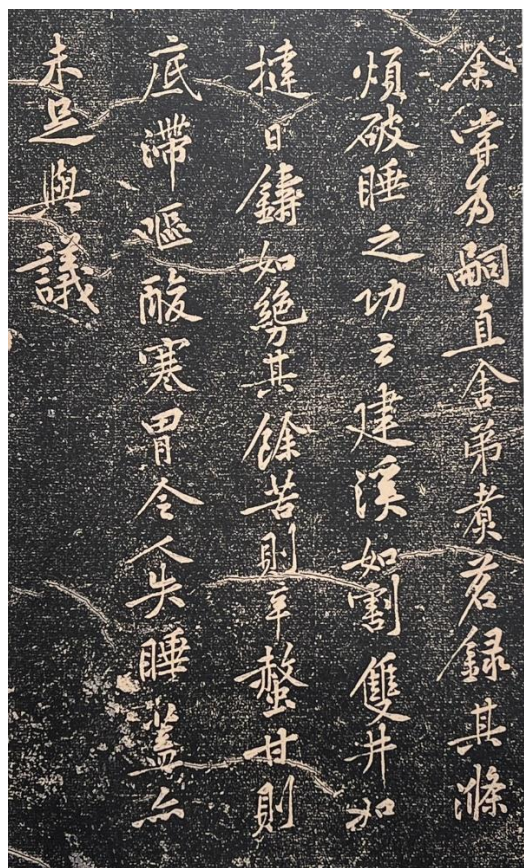 余嘗為嗣直舍弟煮茗錄其滌
煩破睡之功云建溪如割雙井如
撻日鑄如䋲其餘苦則辛螫甘則
底滯嘔酸寒胃令人失睡蓋亦
未足與議